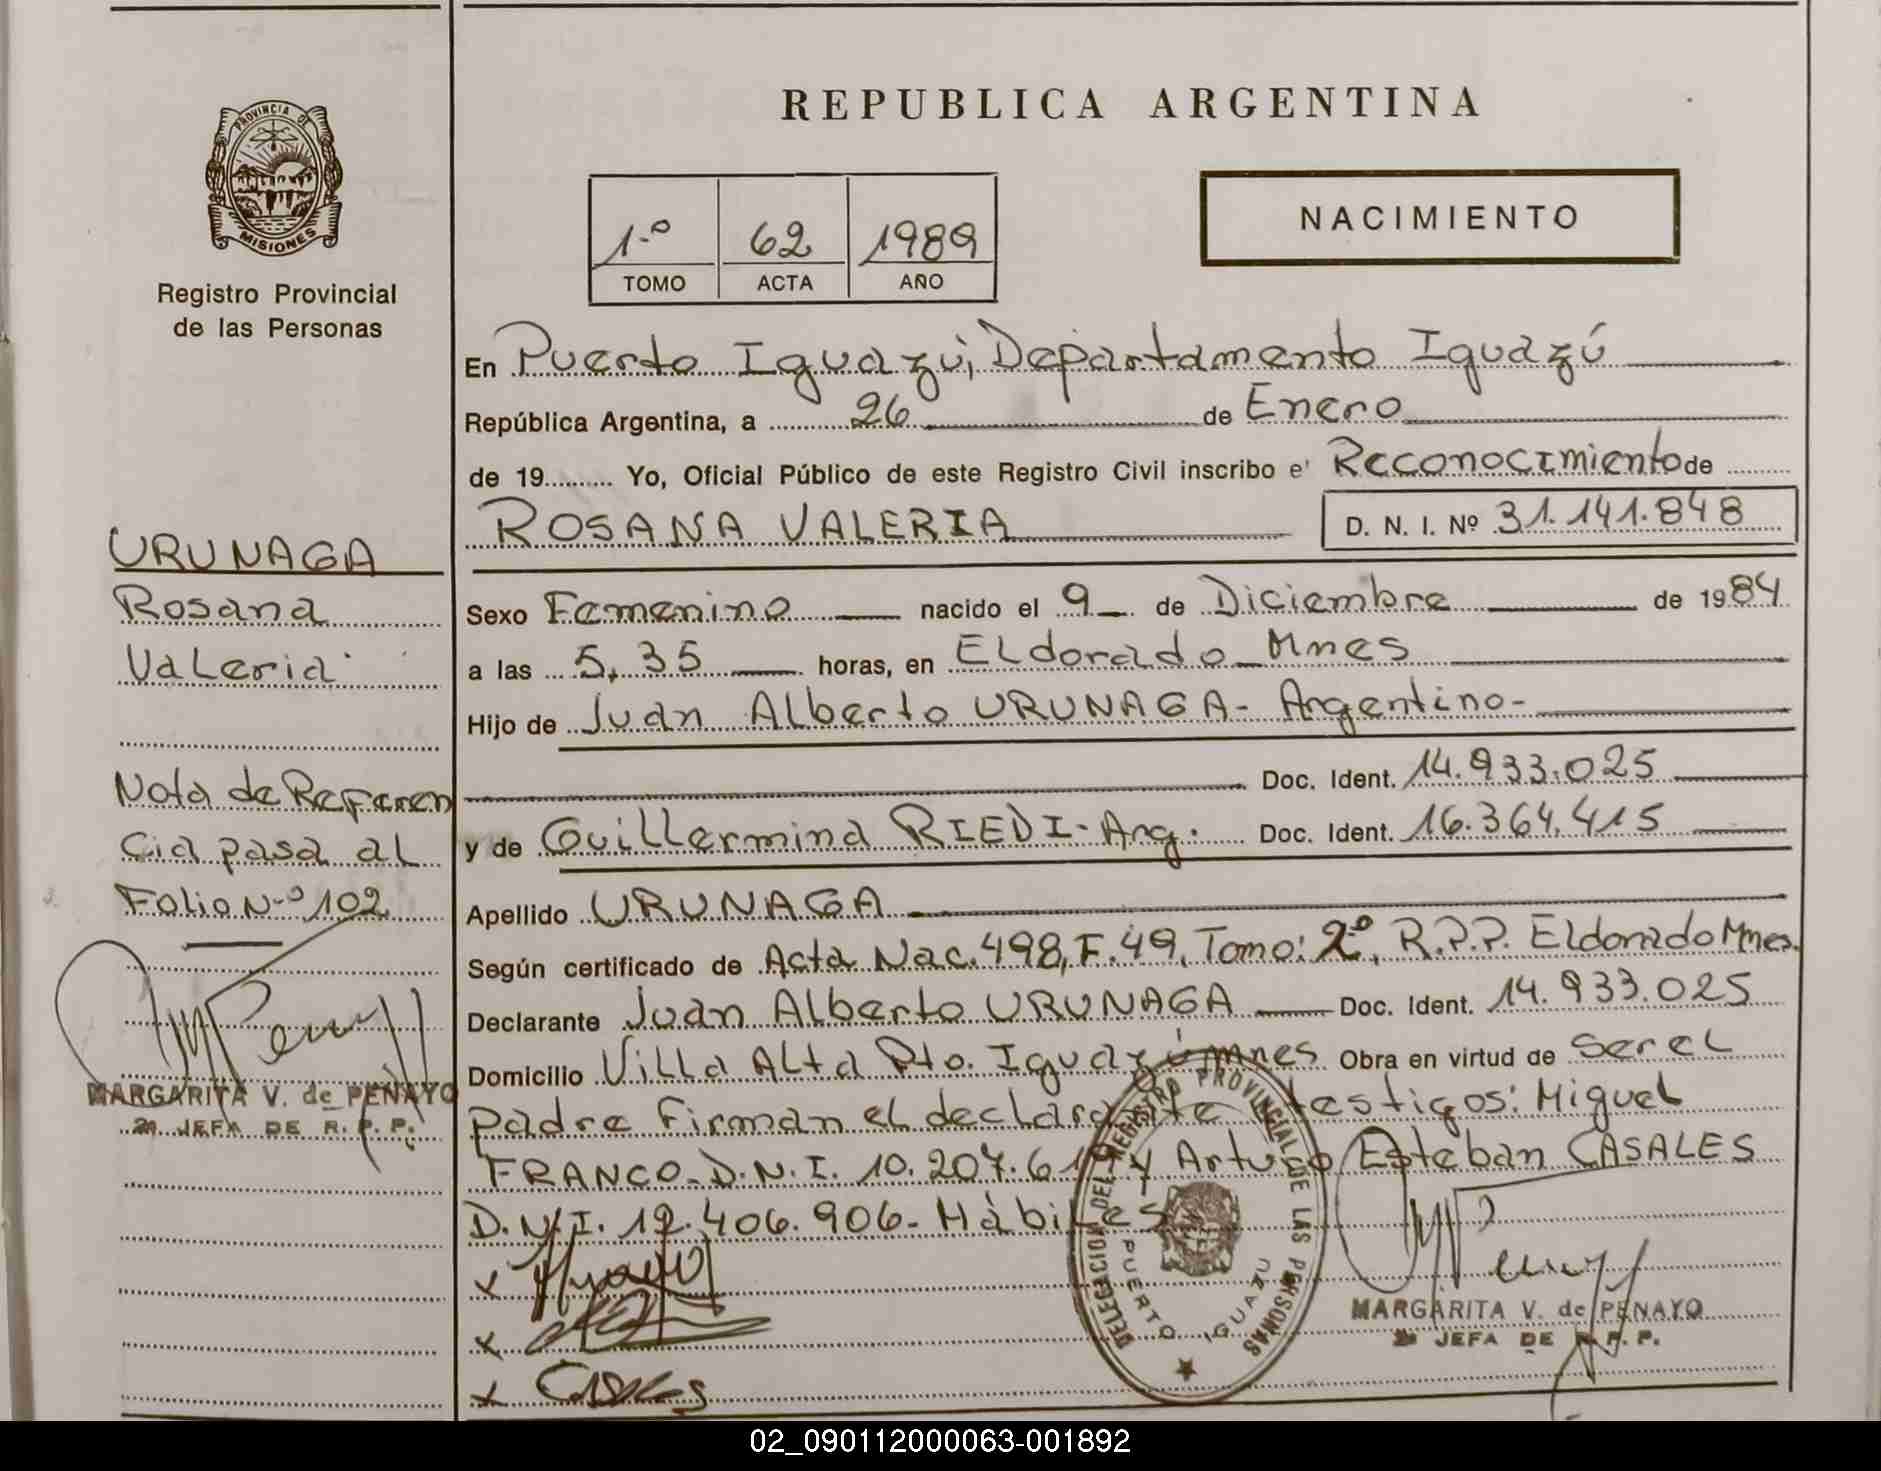 PROVINCIA DE
MISIONES
Registro Provincial
de las Personas
URUNAGA
Rosana
Valeria
Nota de Referen
cia pasa al
Folio N-º 102
MARGARITA V. de PENAYO
2ª JEFA DE R. P. P.
REPUBLICA ARGENTINA
1-º 62 1989
TOMO ACTA AÑO
NACIMIENTO
En Puerto Iguazú, Departamento Iguazú
República Argentina, a 26 de Enero
de 19 Yo, Oficial Público de este Registro Civil inscribo e' Reconocimiento de
ROSANA VALERIA D. N. I. Nº 31.141.848
Sexo Femenino nacido el 9 de Diciembre de 1984
a las 5,35 horas, en Eldorado Mnes
Hijo de Juan Alberto URUNAGA- Argentino-
Doc. Ident. 14.933.025
y de Guillermina RIEDI- Arg. Doc. Ident. 16.364.415
Apellido URUNAGA
Según certificado de Acta Nac. 498, F. 49, Tomo: 2º, R.P.P. Eldorado Mnes.
Declarante Juan Alberto URUNAGA Doc. Ident. 14.933.025
Domicilio Villa Alta Pto. Iguazú Mnes Obra en virtud de ser el
padre Firman el declarante testigos: Miguel
FRANCO- D.N.I. 10.207. y Arturo Esteban CASALES
D.N.I. 12.406.906- Hábiles
x
x
x Casales
DELEGACION DEL REGISTRO PROVINCIAL DE LAS PERSONAS
PUERTO IGUAZU
MARGARITA V. de PENAYO
2ª JEFA DE R. P. P.
02_090112000063-001892